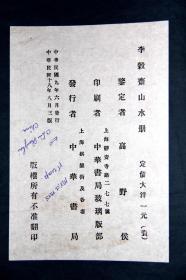 李穀齋山水册　定價大洋一元（實）
鑒定者　高野侯
上海靜安寺路二七七號
印刷者　中華書局玻璃版部
上海棋盤街及各省
發行者　中華書局
中華民國九年六月發行
中華民國十八年八月三版
版權所有不准翻印